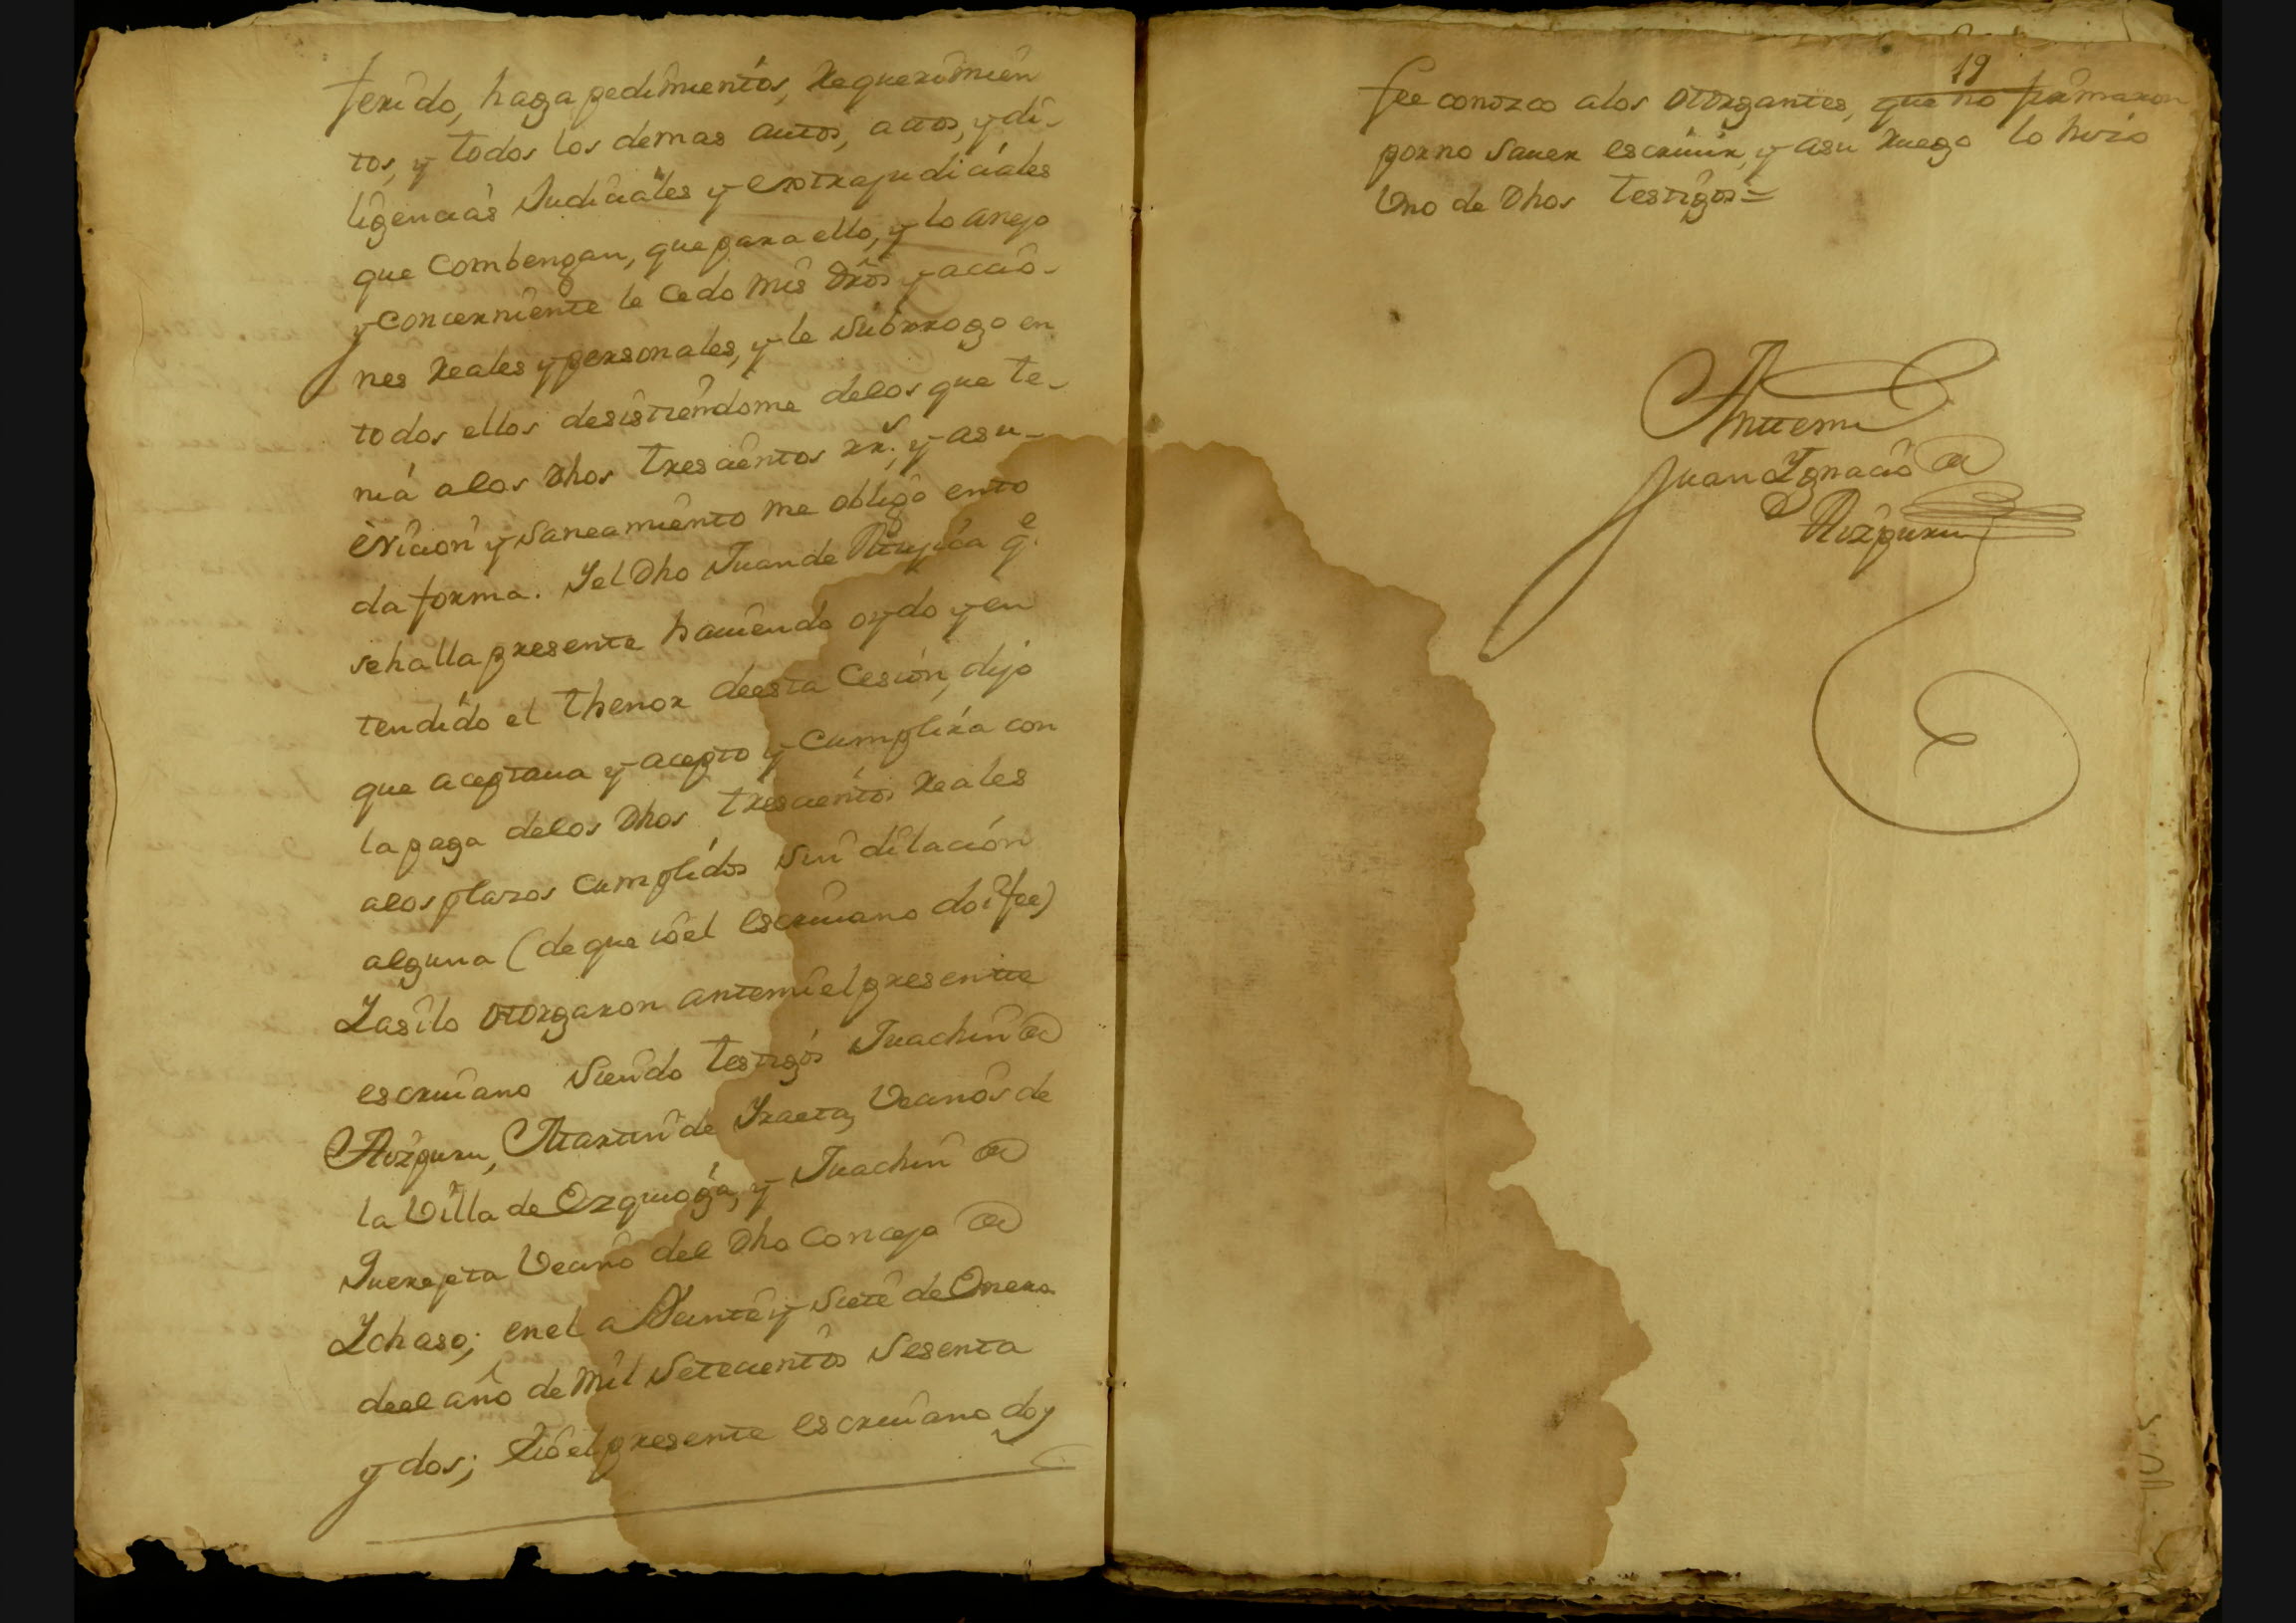 ferido, haga pedimientos, Requerimien
tos, y todos los demas autos, actos, y di-
ligencias Judiciales y extrajudiciales
que Combengan, que para ello, y lo anejo
y concerniente le Cedo mis dros y accio-
nes Reales y personales, y le Subrrogo en
todos ellos desistiendome delos que te-
nia alos dhos trescientos rrs. y asu
evicion y Saneamiento me obligo ento
da forma. Y el dho Juan de Mujica q.e
sehalla presente haviendo oydo y en
tendido el thenor deesta Cesion, dijo
que aceptaua y acepto y Cumplira con
la paga delos dhos trescientos Reales
alos plazos Cumplidos Sin dilacion
alguna (de que io el escriuano doi fee)
Y asilo otorgaron antemi el presentte
escriuano Siendo testigos Juachin de
Aizpuru, Martin de Yraeta, Vecinos de
la Villa de Ezquioga, y Juachin de
Vecino del dho Concejo de
Ychaso; en el a Veinte y Siete de Enero
deel año de mil Setecientos Sesenta
y dos; E io el presente escriuano doy
19
fee conozco alos otorgantes, que no firmaron
porno Sauer escriuir, y asu Ruego lo hizo
Vno de dhos testigos =
Anttemi
Juan Ygnacio de
Aizpuru